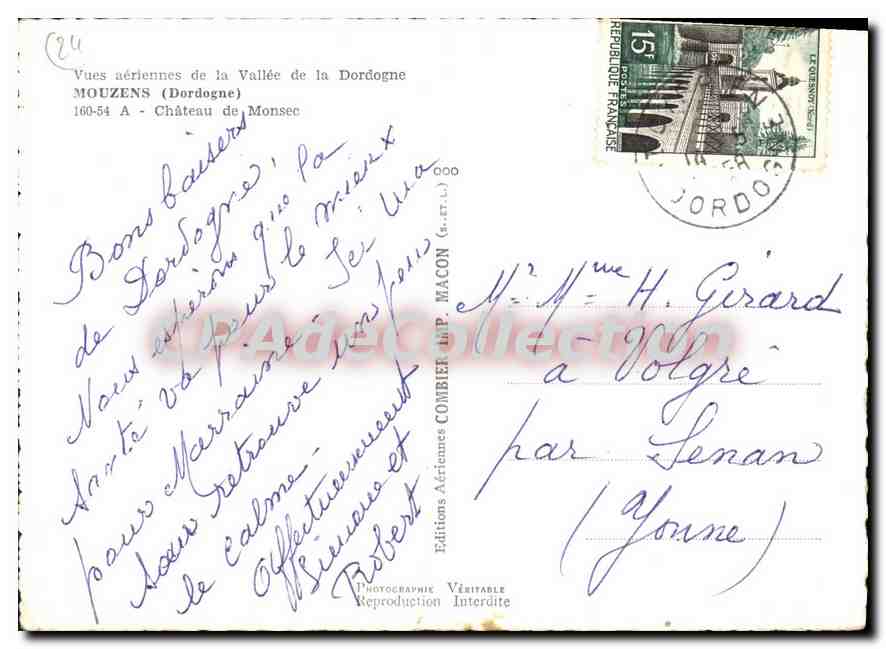 (24
Vues aériennes de la Vallée de la Dordogne
MOUZENS (Dordogne)
160-54 A - Château de Monsec
Bons baisers
de Dordogne,
Nous espérons que la
santé va pour le mieux
pour Marraine. Ici ma
sœur retrouve un peu
le calme.
Affectueusement
Simone et
Robert
Editions Aériennes COMBIER IMP. MACON (S.-ET-L.)
PHOTOGRAPHIE VÉRITABLE
Reproduction Interdite
15F
POSTES
REPUBLIQUE FRANÇAISE
LE QUESNOY (Nord)
DORDO
Mr Mme H. Gérard
à Volgré
par Senan
(Yonne)
CPAdeCollection